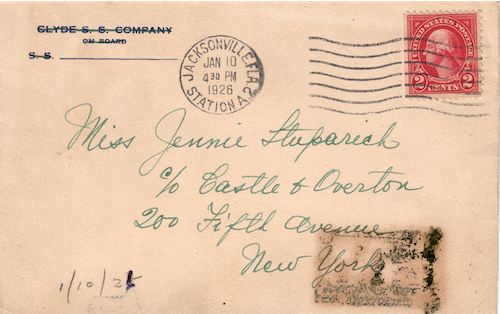 CLYDE S. S. COMPANY
ON BOARD
S. S.
JACKSONVILLE, FLA.
JAN 10
4 30 PM
1926
STATION A. 2
UNITED STATES POSTAGE
2 CENTS 2
Miss Jennie Stuparich
c/o Castle & Overton
200 Fifth Avenue
New York
1/10/26